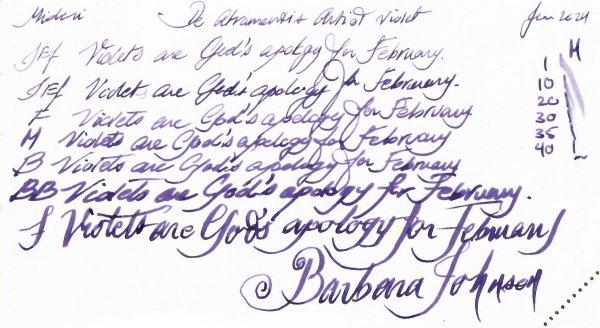 Midori - De Atramentis Artist Violet Jan 2024
JEF Violets are God's apology for February.
EF Violets are God's apology for February.
F Violets are God's apology for February
M Violets are God's apology for February
B Violets are God's apology for February
BB Violets are God's apology for February.
f Violets are God's apology for February
© Barbara Johnson
M
1
10
20
30
35
40